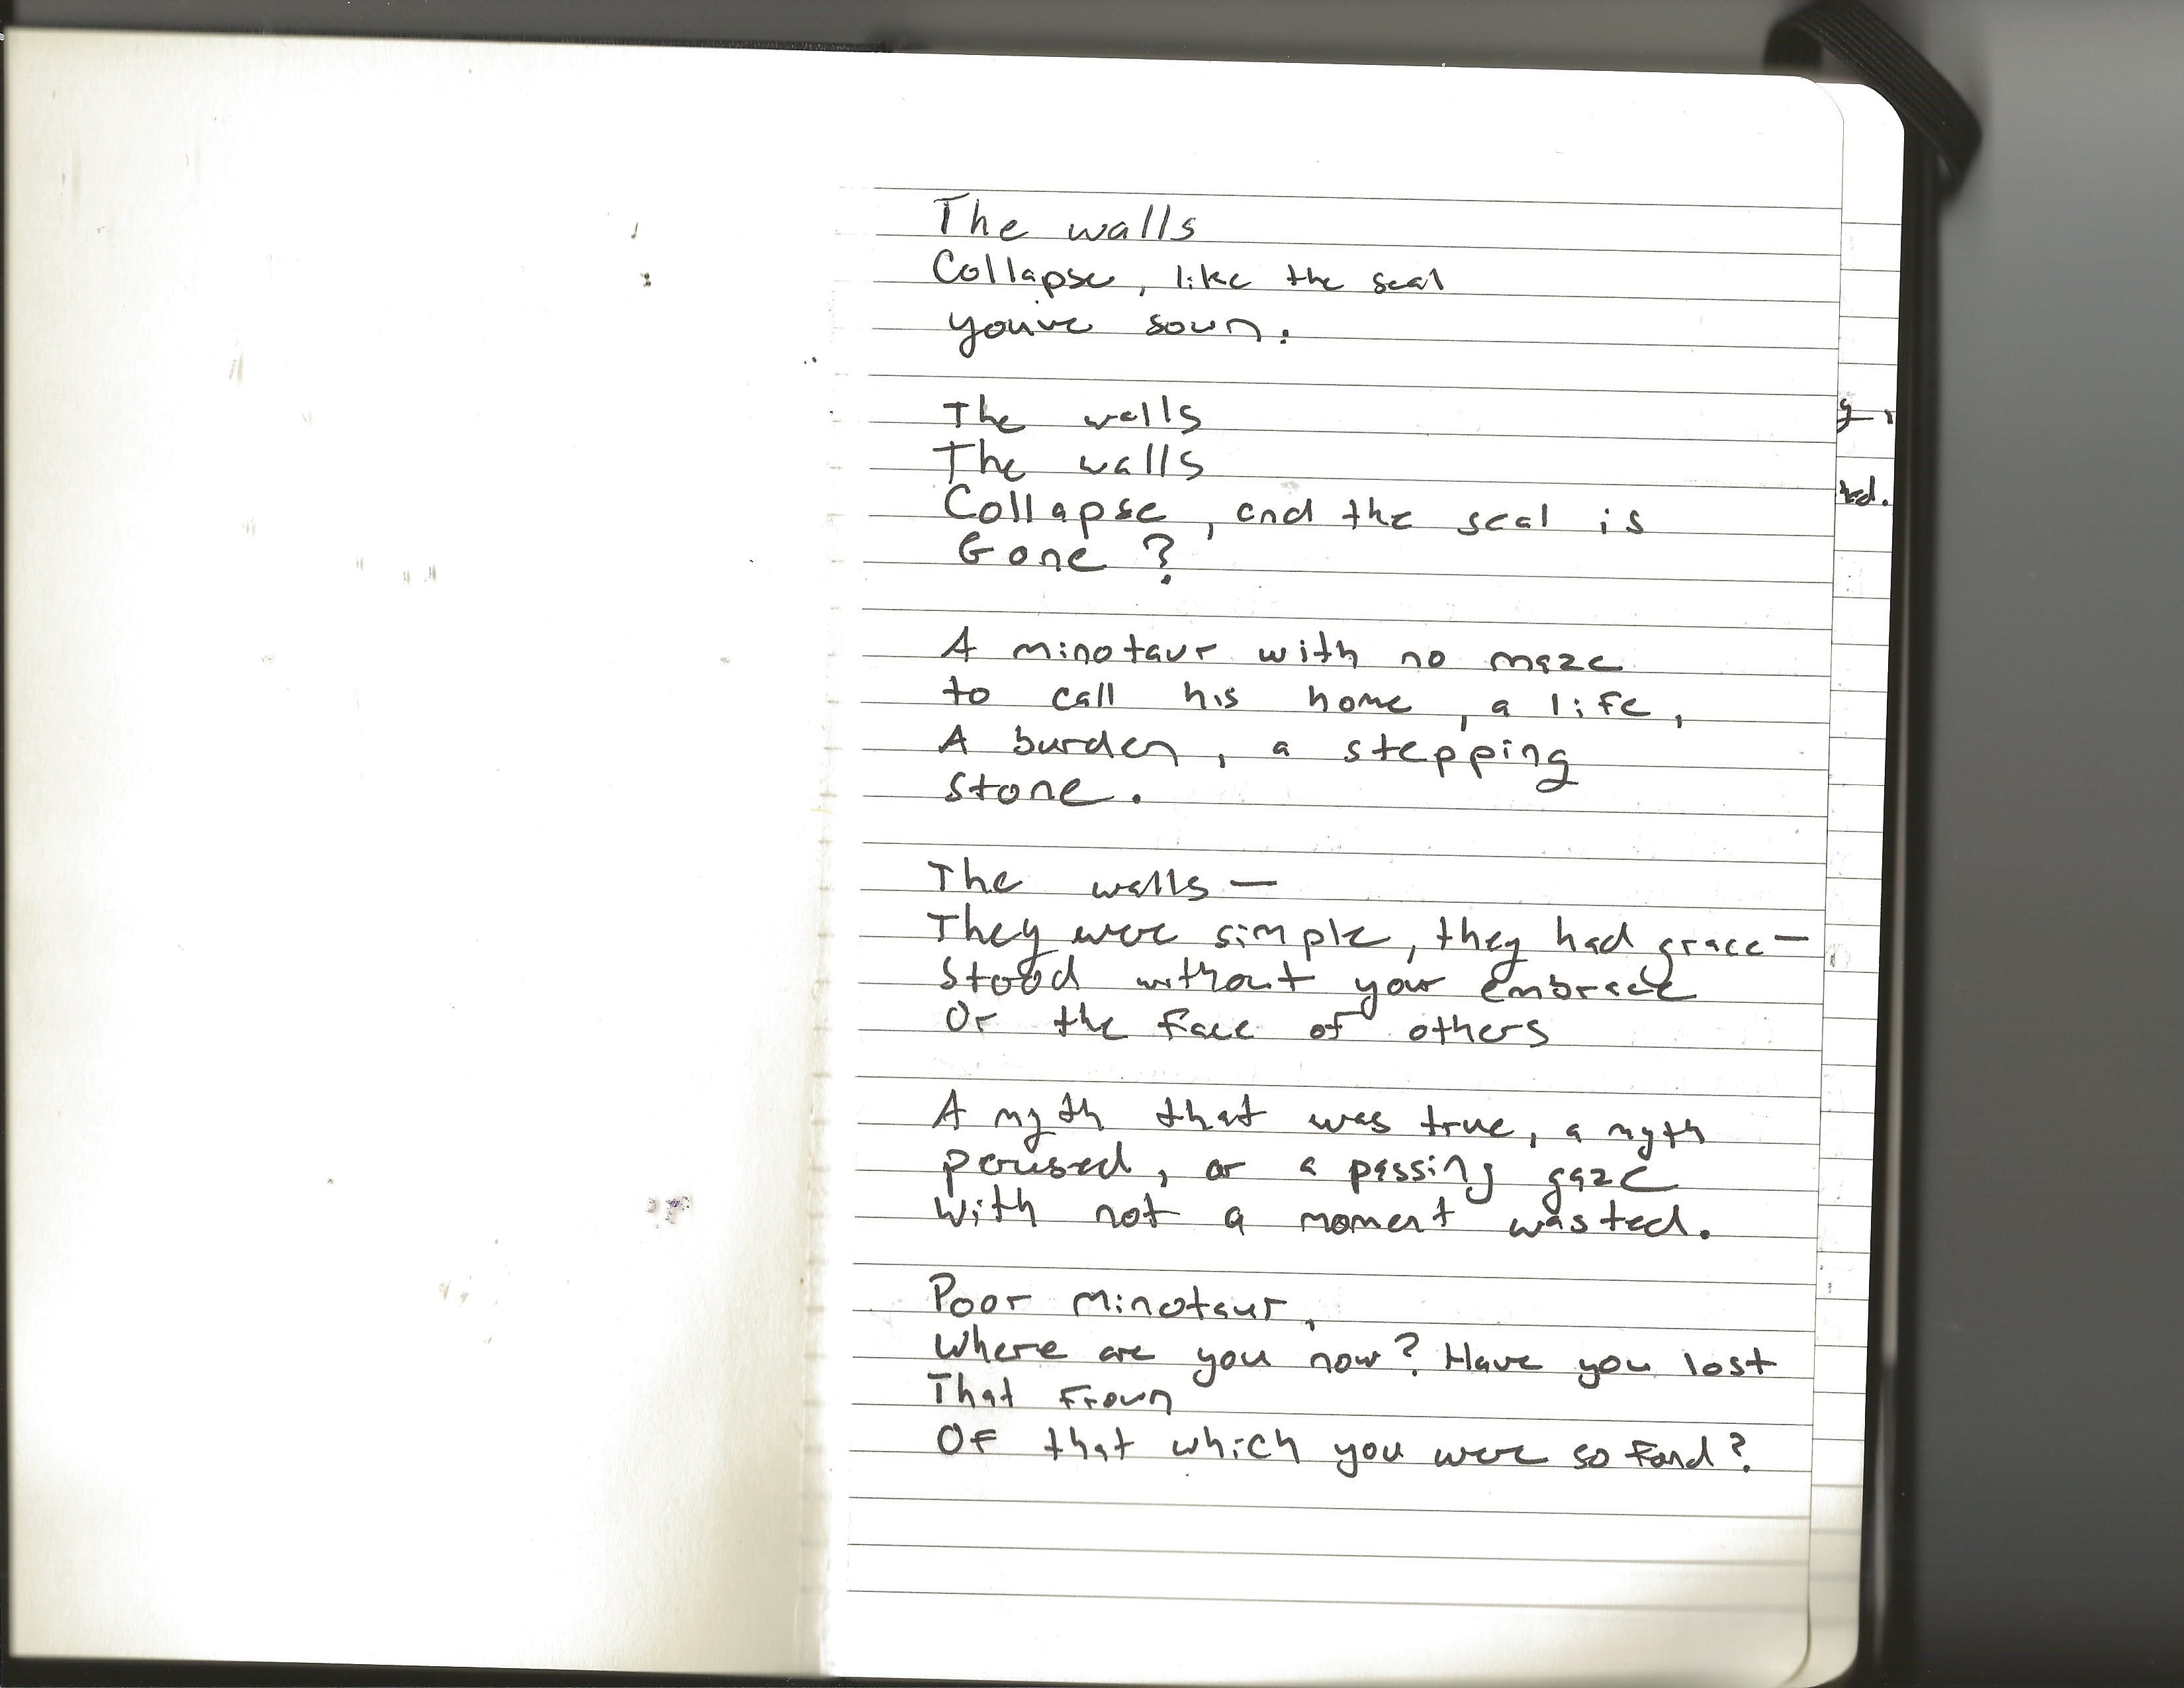 The walls
Collapse, like the seal
you've sown.
The walls
The walls
Collapse, and the seal is
Gone?
A minotaur with no maze
to call his home, a life,
A burden, a stepping
stone.
The walls —
They were simple, they had grace —
Stood without your embrace
Or the face of others
A myth that was true, a myth
perused, or a passing gaze
With not a moment wasted.
Poor minotaur,
Where are you now? Have you lost
That frown
Of that which you were so fond?
g,
ted.